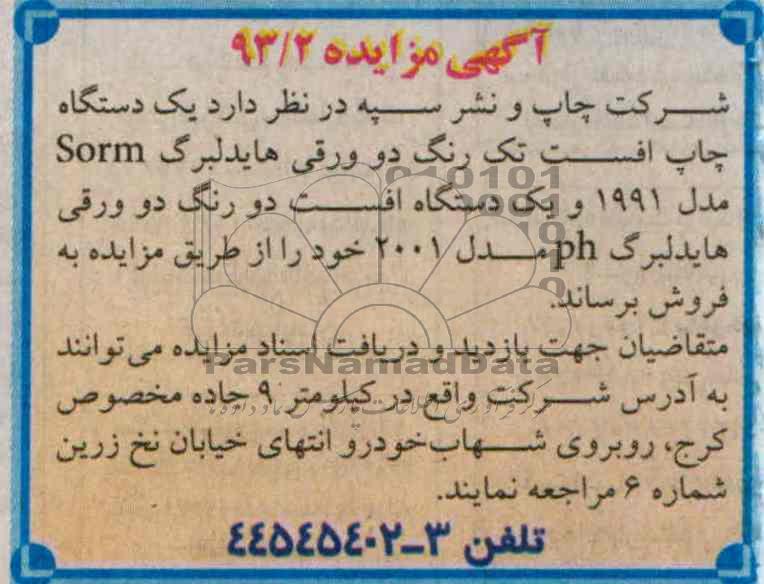 آگهی مزایده ۹۳/۲
شرکت چاپ و نشر سپه در نظر دارد یک دستگاه
چاپ افست تک رنگ دو ورقی هایدلبرگ Sorm
مدل ۱۹۹۱ و یک دستگاه افست دو رنگ دو ورقی
هایدلبرگ ph مدل ۲۰۰۱ خود را از طریق مزایده به
فروش برساند.
متقاضیان جهت بازدید و دریافت اسناد مزایده می‌توانند
ParsNamadData
به آدرس شرکت واقع در کیلومتر ۹ جاده مخصوص
کرج، روبروی شهاب‌خودرو انتهای خیابان نخ زرین
شماره ۶ مراجعه نمایند.
تلفن ۳-۴۴۵۴۵۴۰۲